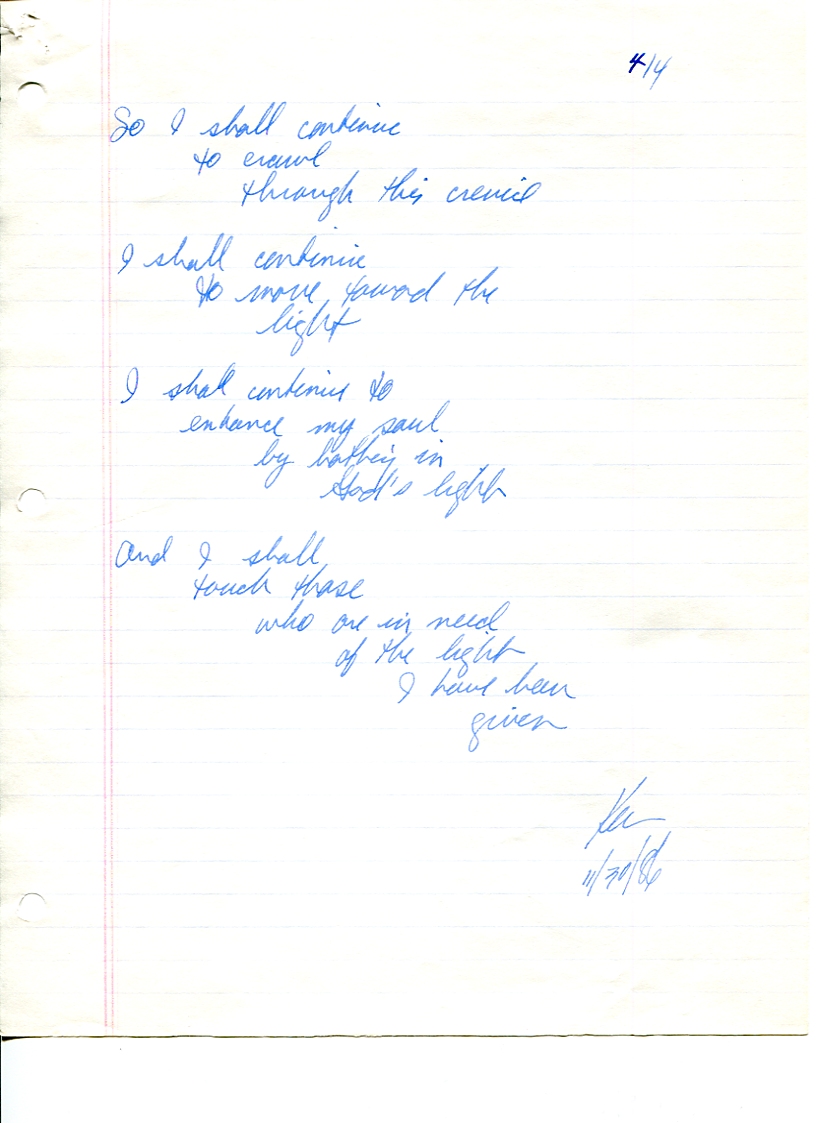 4/4
So I shall continue
to crawl
through this crevice
I shall continue
to move toward the
light
I shall continue to
enhance my soul
by bathing in
God's light
And I shall
touch those
who are in need
of the light
I have been
given
Ken
11/30/86